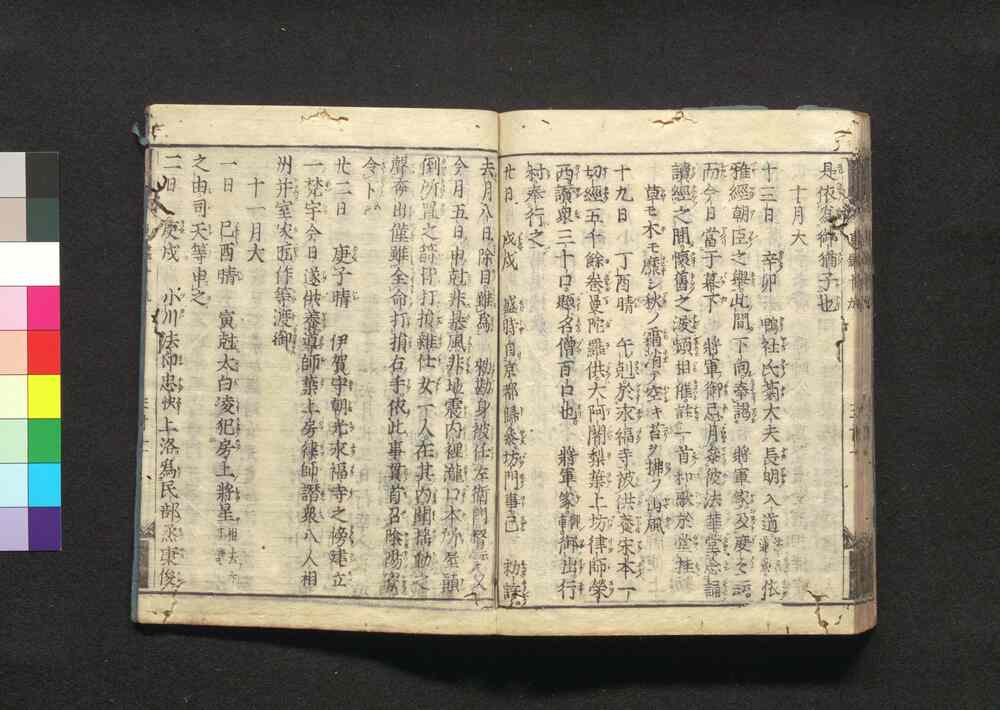 是依爲御猶子也
十月大
十三日 辛卯 鴨社氏菊大夫長明入道 依
雅經朝臣之擧此間下向奉謁 將軍家及度々云云
而今日當于幕下 將軍御忌月參彼法華堂念誦
讀經之間懷舊之淚頻相催註一首和歌於堂柱
草モ木モ靡シ秋ノ霜消テ空キ苔ヲ拂フ山風
十九日 丁酉晴 午剋於永福寺被供養宋本一
切經五千餘卷曼陀羅供大阿闍梨葉上坊律師榮
西讚衆三十口題名僧百口也 將軍家 御出行
村奉行之
廿日 戊戌 盛時自京都歸參坊門 事已 勅許
去月八日除目雖爲 勅勘身被任左衞門 又
今月五日申剋非暴風非地震内裡瀧口本所屋顚
倒所置之 打損雜仕女一人在其内聞搖動之
聲奔出僅雖全命打損右手依此事貫首召陰陽家
令卜
廿二日 庚子晴 伊賀守朝光永福寺之傍建立
一梵宇今日遂供養導師葉上房律師讚衆八人相
州并室家匠作等渡御
十一月大
一日 己酉晴 寅剋太白凌犯房上將星 相去
之由司天等申之
二日 庚戌 小川法印忠快上洛爲民部丞康俊